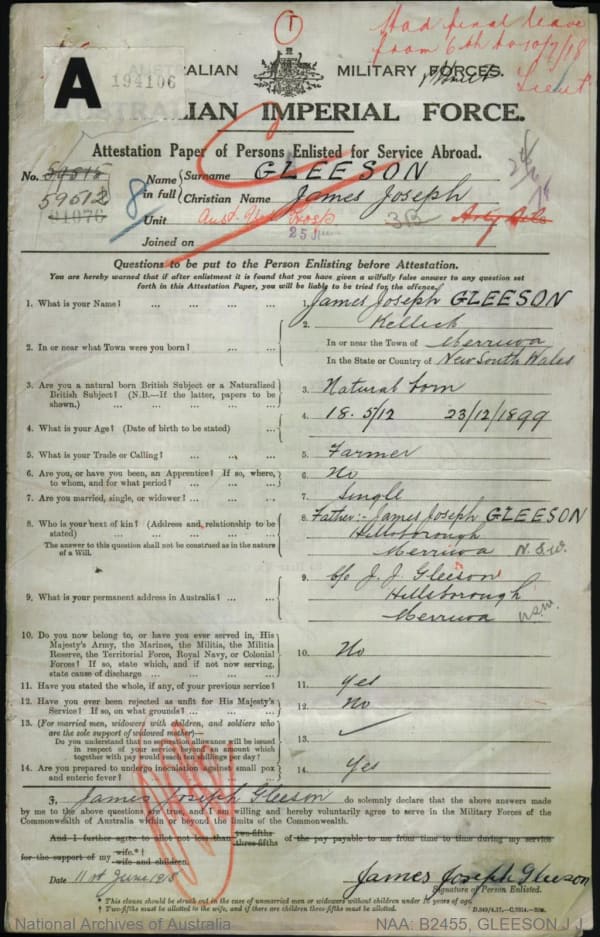 Had final leave
from 6th to 10/7/18
Lieut
A
194106
AUSTRALIAN MILITARY FORCES.
AUSTRALIAN IMPERIAL FORCE.
Attestation Paper of Persons Enlisted for Service Abroad.
No. 59515
59512
91076
8
Name in full
Surname GLEESON
Christian Name James Joseph
Unit
25
3B
Joined on
Questions to be put to the Person Enlisting before Attestation.
You are hereby warned that if after enlistment it is found that you have given a wilfully false answer to any question set
forth in this Attestation Paper, you will be liable to be tried for the offence.
1. What is your Name? ... ... ... ... 1. James Joseph GLEESON
2. In or near what Town were you born? ... ... 2. Kellick
In or near the Town of Merriwa
In the State or Country of New South Wales
3. Are you a natural born British Subject or a Naturalized
British Subject? (N.B.—If the latter, papers to be
shown.) ... ... ... ... 3. Natural born
4. What is your Age? (Date of birth to be stated) ... 4. 18. 5/12 23/12/1899
5. What is your Trade or Calling? ... ... ... 5. Farmer
6. Are you, or have you been, an Apprentice? If so, where,
to whom, and for what period? ... ... ... 6. No
7. Are you married, single, or widower? ... ... ... 7. Single
8. Who is your next of kin? (Address and relationship to be
stated) ... ... ... ... 8. Father:- James Joseph GLEESON
The answer to this question shall not be construed as in the nature
of a Will.
Hillsborough
Merriwa N.S.W.
9. What is your permanent address in Australia? ... ... 9. c/o J. J. Gleeson
Hillsborough
Merriwa N.S.W.
10. Do you now belong to, or have you ever served in, His
Majesty's Army, the Marines, the Militia, the Militia
Reserve, the Territorial Force, Royal Navy, or Colonial
Forces? If so, state which, and if not now serving,
state cause of discharge ... ... ... 10. No
11. Have you stated the whole, if any, of your previous service? 11. Yes
12. Have you ever been rejected as unfit for His Majesty's
Service? If so, on what grounds? ... ... ... 12. No
13. (For married men, widowers with children, and soldiers who
are the sole support of widowed mother)—
Do you understand that no separation allowance will be issued
in respect of your service beyond an amount which
together with pay would reach ten shillings per day? 13. ✓
14. Are you prepared to undergo inoculation against small pox
and enteric fever? ... ... ... ... 14. Yes
I, James Joseph Gleeson do solemnly declare that the above answers made
by me to the above questions are true, and I am willing and hereby voluntarily agree to serve in the Military Forces of the
Commonwealth of Australia within or beyond the limits of the Commonwealth.
And I further agree to allot not less than two-fifths three-fifths of the pay payable to me from time to time during my service
for the support of my wife.*† wife and children.
Date 11th June 1918 James Joseph Gleeson
Signature of Person Enlisted.
* This clause should be struck out in the case of unmarried men or widowers without children under 18 years of age.
† Two-fifths must be allotted to the wife, and if there are children three-fifths must be allotted.
D.349/4.17.—C.7314.—20m.
National Archives of Australia NAA: B2455, GLEESON J J